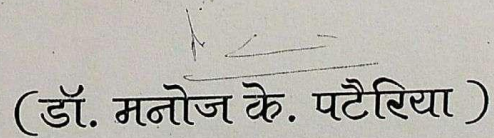 (डॉ. मनोज के. पटैरिया )